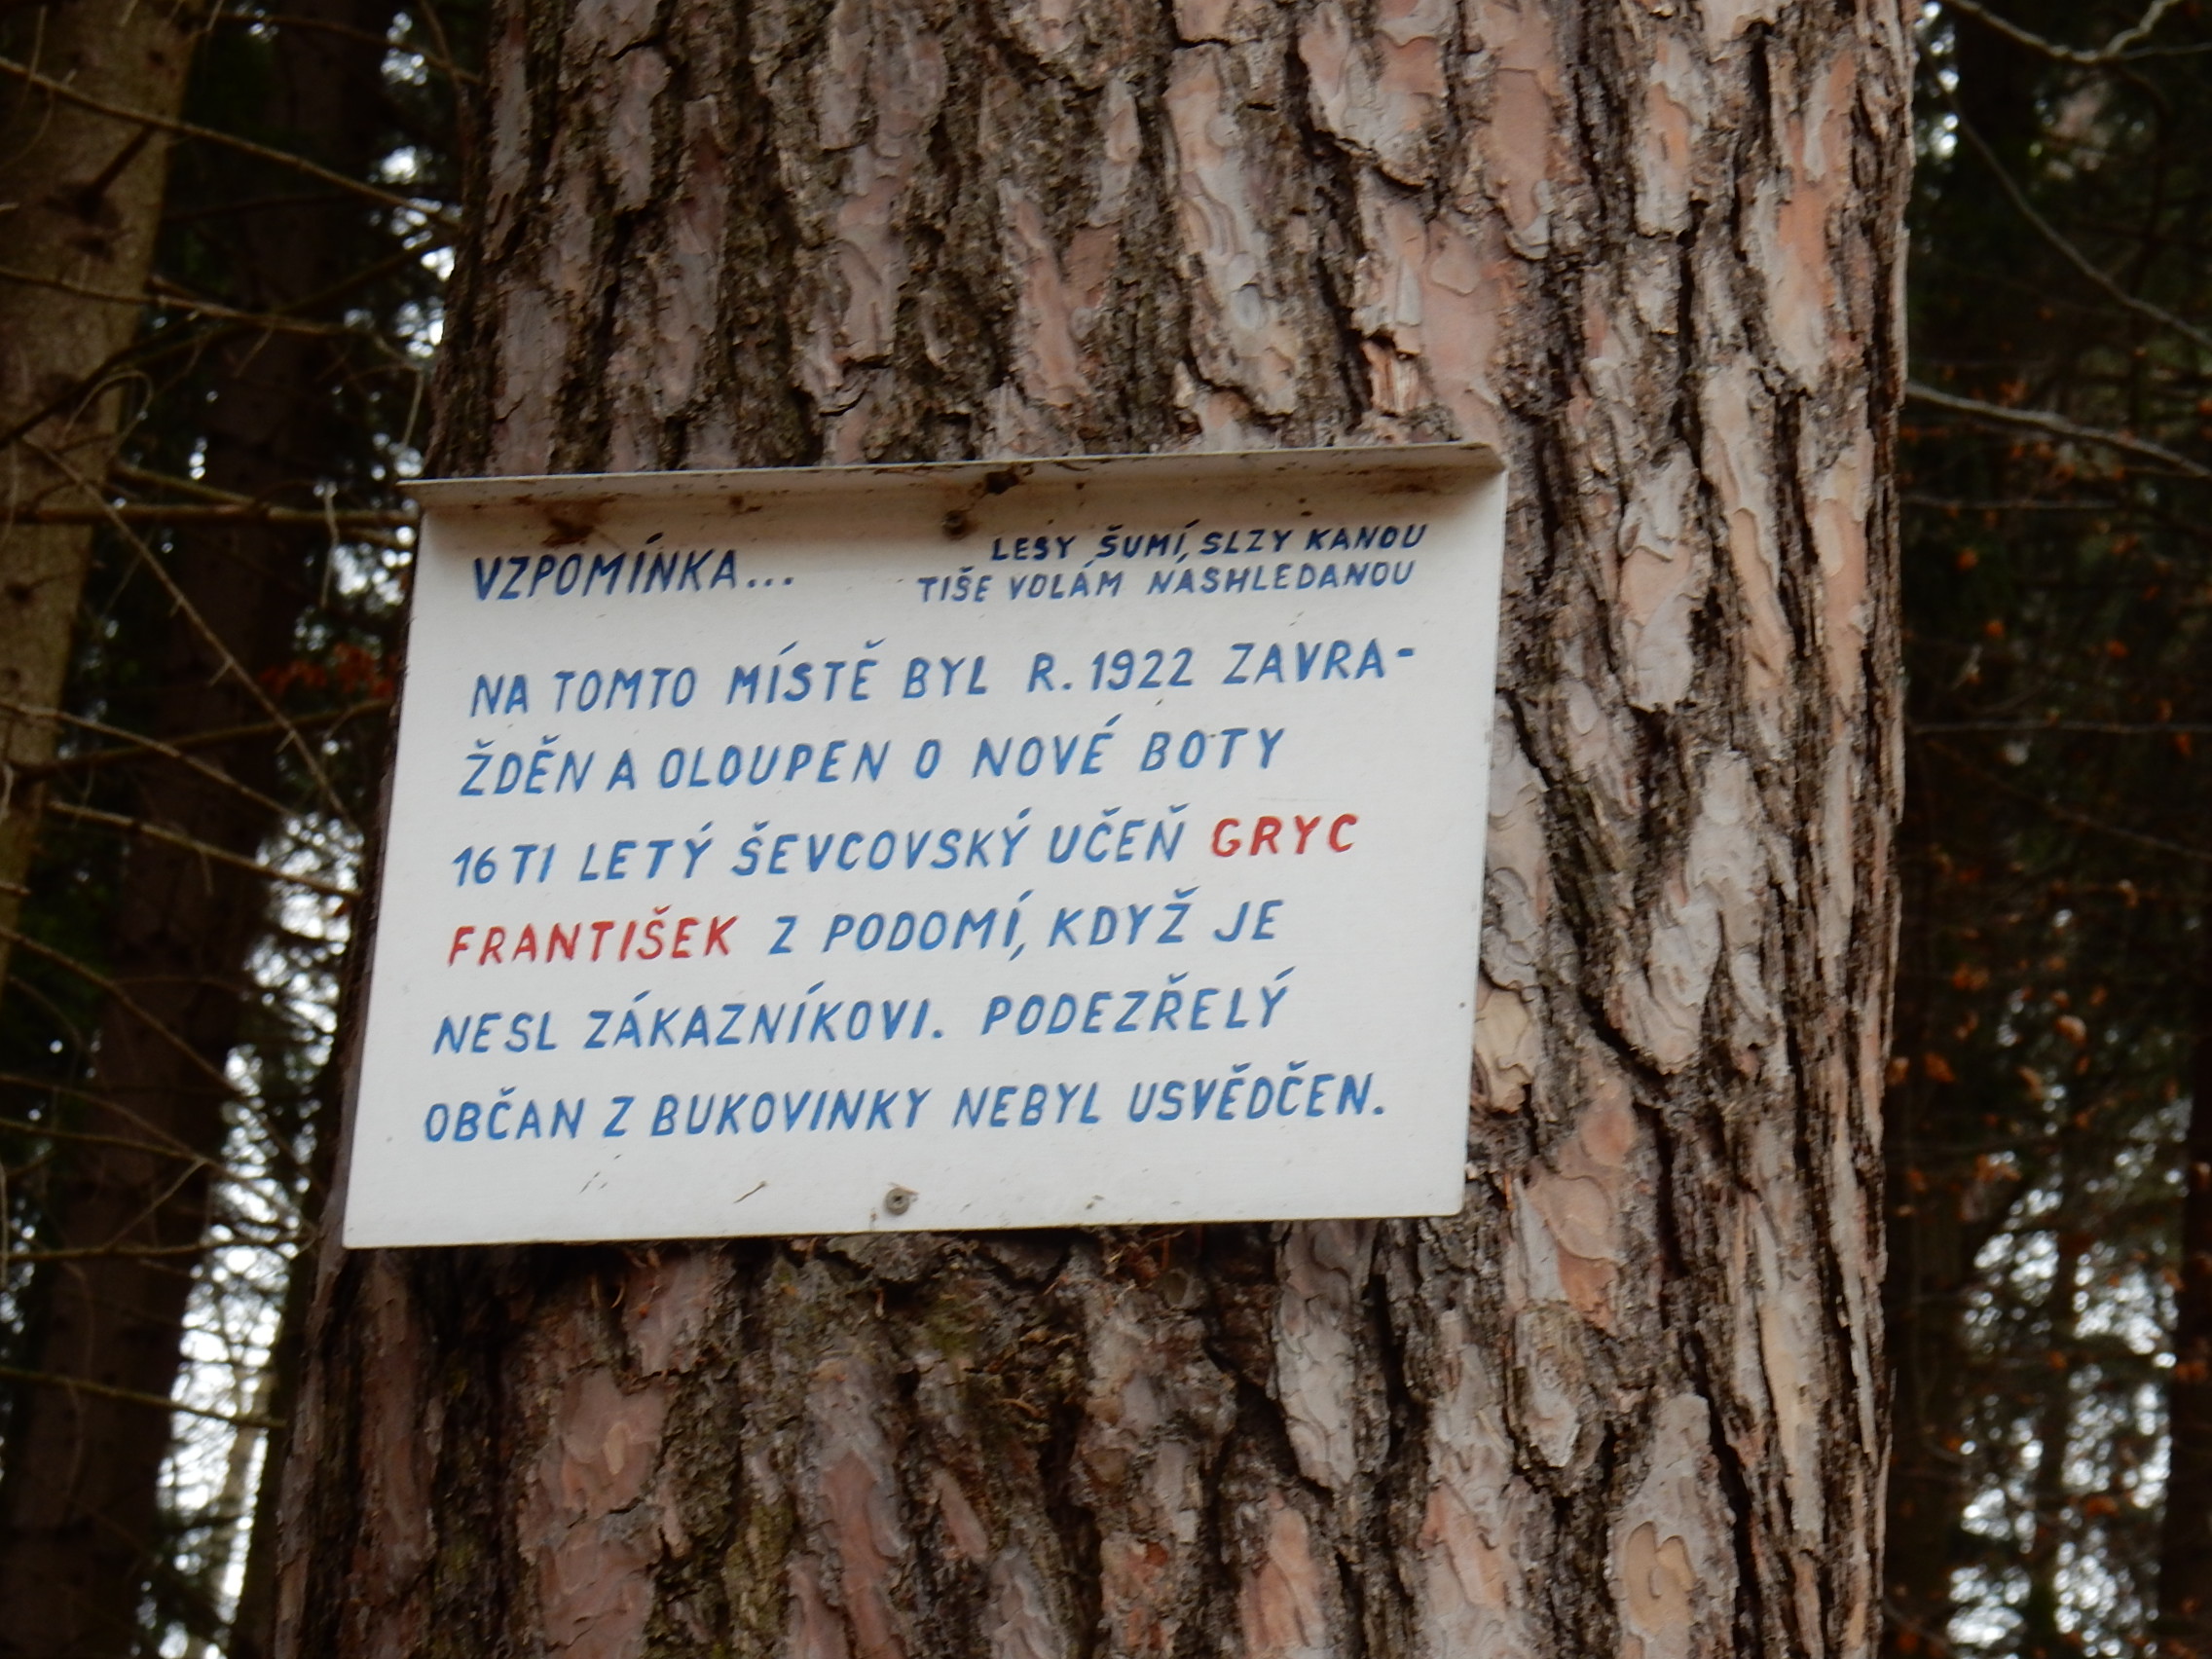 VZPOMÍNKA...
LESY ŠUMÍ, SLZY KANOU
TIŠE VOLÁM NASHLEDANOU
NA TOMTO MÍSTĚ BYL R. 1922 ZAVRA-
ŽDĚN A OLOUPEN O NOVÉ BOTY
16TI LETÝ ŠEVCOVSKÝ UČEŇ GRYC
FRANTIŠEK Z PODOMÍ, KDYŽ JE
NESL ZÁKAZNÍKOVI. PODEZŘELÝ
OBČAN Z BUKOVINKY NEBYL USVĚDČEN.